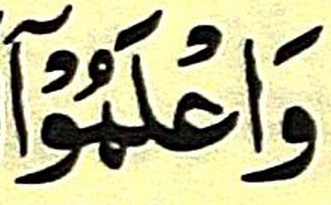 وَاعْلَمُوْٓا